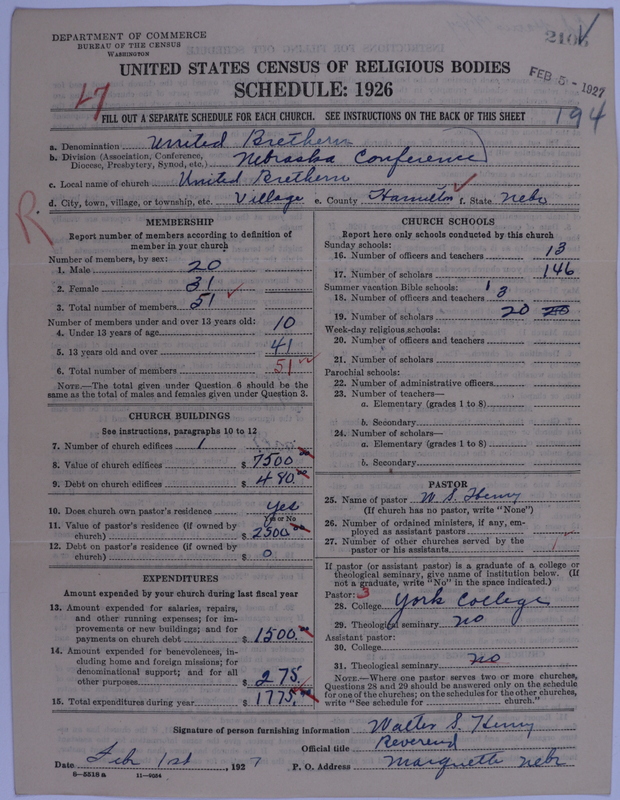 DEPARTMENT OF COMMERCE
BUREAU OF THE CENSUS
WASHINGTON
UNITED STATES CENSUS OF RELIGIOUS BODIES
FEB 5 - 1927
SCHEDULE: 1926
FILL OUT A SEPARATE SCHEDULE FOR EACH CHURCH. SEE INSTRUCTIONS ON THE BACK OF THIS SHEET
194
a. Denomination United Brethern
b. Division (Association, Conference, Diocese, Presbytery, Synod, etc.) Nebraska Conference
c. Local name of church United Brethern
d. City, town, village, or township, etc. Village e. County Hamilton f. State Nebr
R
MEMBERSHIP
Report number of members according to definition of
member in your church
Number of members, by sex:
1. Male 20
2. Female 31
3. Total number of members 51
Number of members under and over 13 years old:
4. Under 13 years of age 10
5. 13 years old and over 41
6. Total number of members 51
NOTE.—The total given under Question 6 should be the
same as the total of males and females given under Question 3.
CHURCH BUILDINGS
See instructions, paragraphs 10 to 12
7. Number of church edifices 1
8. Value of church edifices $ 7500.00
9. Debt on church edifices $ 480.00
10. Does church own pastor's residence yes
Yes or No
11. Value of pastor's residence (if owned by
church) $ 2500.00
12. Debt on pastor's residence (if owned by
church) $ 0
EXPENDITURES
Amount expended by your church during last fiscal year
13. Amount expended for salaries, repairs,
and other running expenses; for im-
provements or new buildings; and for
payments on church debt $ 1500.00
14. Amount expended for benevolences, in-
cluding home and foreign missions; for
denominational support; and for all
other purposes $ 275.
15. Total expenditures during year $ 1775.00
CHURCH SCHOOLS
Report here only schools conducted by this church
Sunday schools:
16. Number of officers and teachers 13
17. Number of scholars 146
Summer vacation Bible schools:
18. Number of officers and teachers 3
19. Number of scholars 20
Week-day religious schools:
20. Number of officers and teachers
21. Number of scholars
Parochial schools:
22. Number of administrative officers
23. Number of teachers—
a. Elementary (grades 1 to 8)
b. Secondary
24. Number of scholars—
a. Elementary (grades 1 to 8)
b. Secondary
PASTOR
25. Name of pastor W. S. Henry
(If church has no pastor, write "None")
26. Number of ordained ministers, if any, em-
ployed as assistant pastors
27. Number of other churches served by the
pastor or his assistants
If pastor (or assistant pastor) is a graduate of a college or
theological seminary, give name of institution below. (If
not a graduate, write "No" in the space indicated.)
Pastor: 3
28. College York College
29. Theological seminary no
Assistant pastor:
30. College
31. Theological seminary no
NOTE.—Where one pastor serves two or more churches,
Questions 28 and 29 should be answered only on the schedule
for one of the churches; on the schedules for the other churches,
write "See schedule for church."
Signature of person furnishing information Walter S. Henry
Official title Reverend
Date Feb 1st, 1927 P. O. Address Marquette Nebr
8-5518 a 11-9054